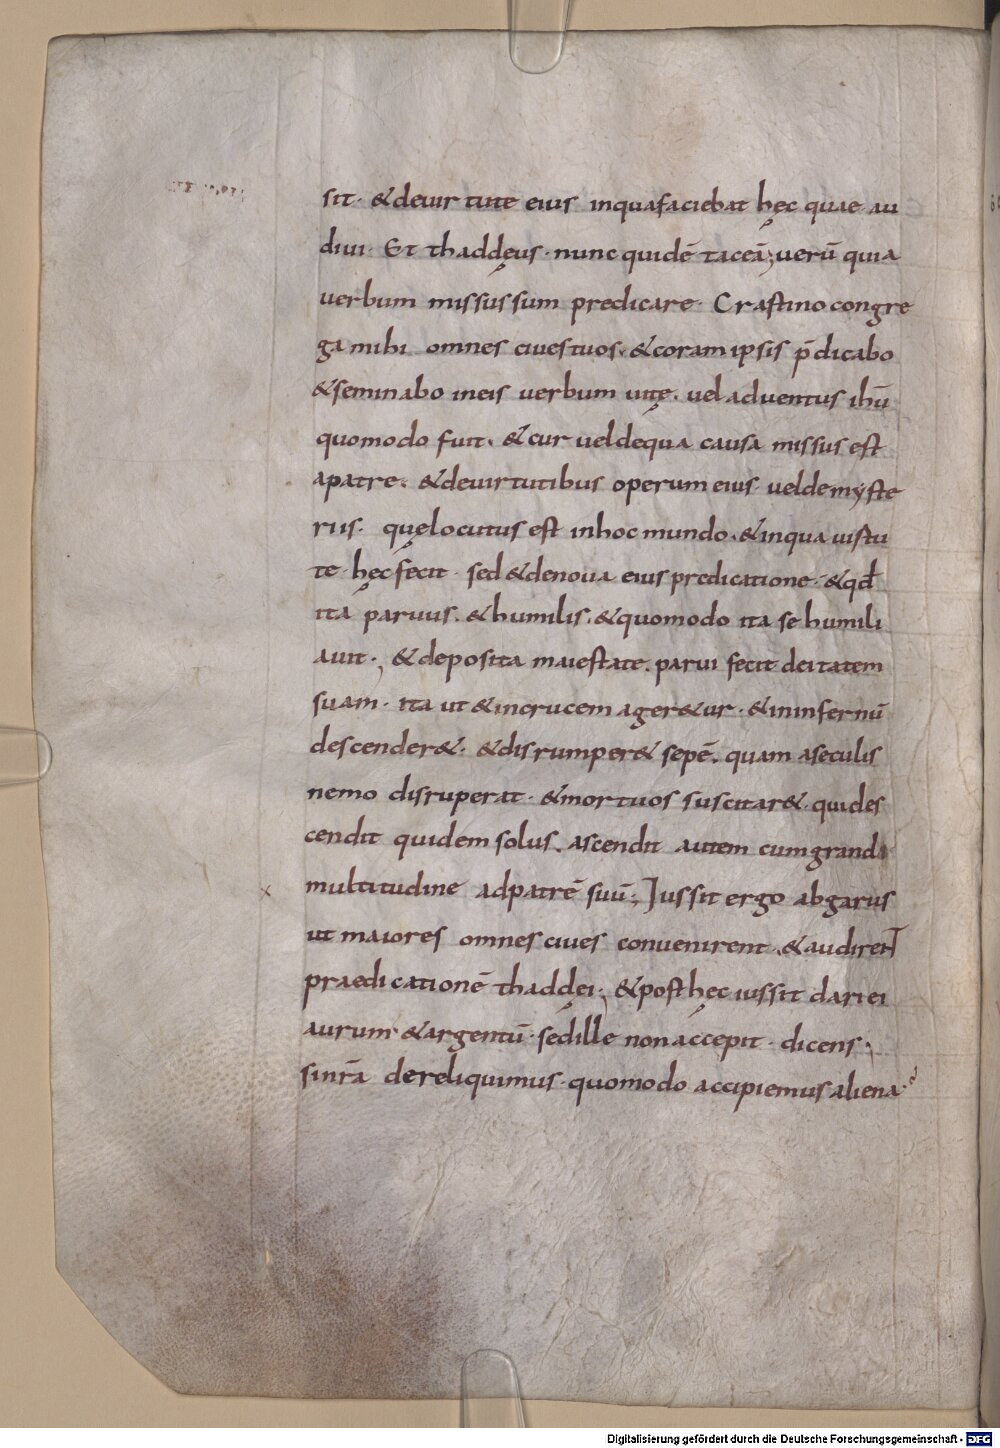 sit· & deuirtute eius inquafaciebat hęc quae au
diui· Et thaddęus· nunc quidē taceā; uerū quia
uerbum missus sum predicare· Crastino congre
ga mihi omnes ciues tuos· & coram ipsis p̄dicabo
& seminabo in eis uerbum uitę· uel aduentus ihū
quomodo fuit· & cur uel dequa causa missus est
apatre· & deuirtutibus operum eius uel de myste
riis· quę locutus est in hoc mundo· & inqua uirtu
te hęc fecit· sed & denoua eius predicatione· & qđ
ita paruus· & humilis· & quomodo ita se humili
auit·, & deposita maiestate· parui fecit deitatem
suam· ita ut & incrucem ager&ur· & in infernū
descender&· & disrumper& sepē· quam aseculis
nemo disruperat· & mortuos suscitar&· qui des
cendit quidem solus· ascendit autem cum grandi
multitudine ad patrē suū; Iussit ergo abgarus
ut maiores omnes ciues conuenirent· & audirent
praedicationē thaddęi; & post hęc iussit dari ei
aurum· & argentū· sed ille non accepit· dicens;
si nr̄a dereliquimus· quomodo accipiemus aliena·
Digitalisierung gefördert durch die Deutsche Forschungsgemeinschaft - DFG